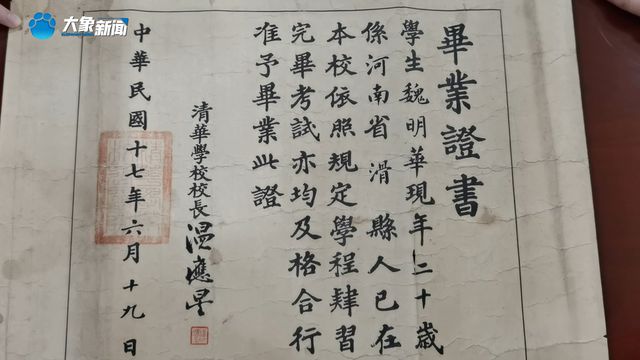 大象新闻
畢業證書
學生魏明華現年二十歲
係河南省滑縣人已在
本校依照規定學程肄習
完畢考試亦均及格合行
准予畢業此證
清華學校校長溫應星
中華民國十七年六月十九日